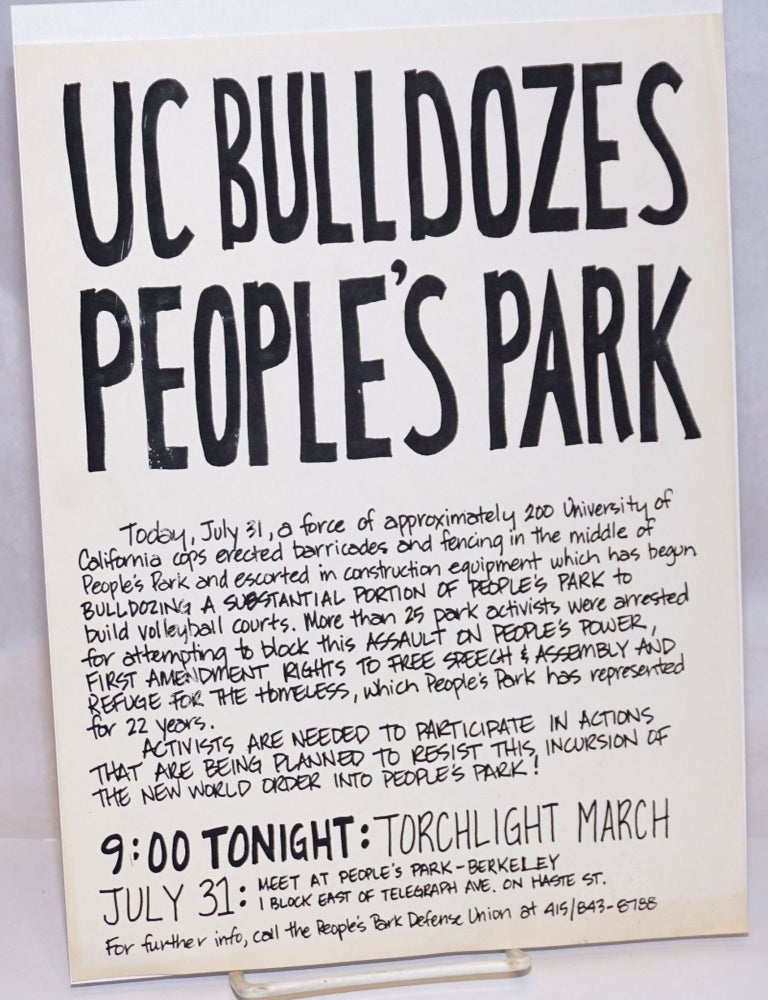 UC BULLDOZES
PEOPLE'S PARK
Today, July 31, a force of approximately 200 University of
California cops erected barricades and fencing in the middle of
People's Park and escorted in construction equipment which has begun
BULLDOZING A SUBSTANTIAL PORTION OF PEOPLE'S PARK to
build volleyball courts. More than 25 park activists were arrested
for attempting to block this ASSAULT ON PEOPLE'S POWER,
FIRST AMENDMENT RIGHTS TO FREE SPEECH & ASSEMBLY AND
REFUGE FOR THE HOMELESS, which People's Park has represented
for 22 years.
ACTIVISTS ARE NEEDED TO PARTICIPATE IN ACTIONS
THAT ARE BEING PLANNED TO RESIST THIS INCURSION OF
THE NEW WORLD ORDER INTO PEOPLE'S PARK!
9:00 TONIGHT: TORCHLIGHT MARCH
JULY 31: MEET AT PEOPLE'S PARK - BERKELEY
1 BLOCK EAST OF TELEGRAPH AVE. ON HASTE ST.
For further info, call the People's Park Defense Union at 415/843-8788